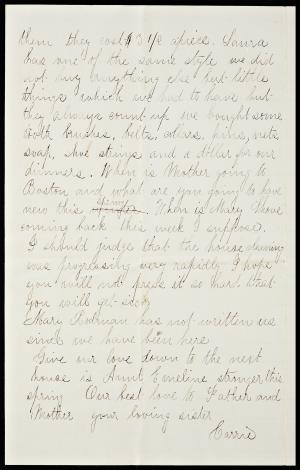 them they cost $3 1/2 apiece. Laura
has one of the same style we did
not buy anything else but little
things which we had to have but
they always count up we bought some
tooth brushes, belts, collars, pins, nets
soap, shoe strings and a dollar for our
dinners. When is Mother going to
Boston and what are you going to have
new this When is Mary
coming back this week I suppose.
I should judge that the house cleaning
was progressing very rapidly I hope
you will not press it so hard that
you will get sick
Mary Rodman has not written us
since we have been here
Give our love down to the next
house is Aunt Emeline stronger this
spring Our best love to Father and
Mother your loving sister
Carrie